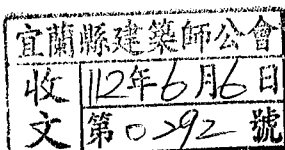 宜蘭縣建築師公會
收文
112年6月6日
第0292號